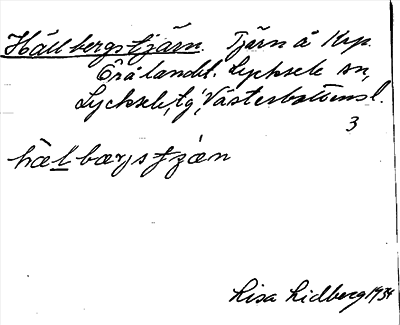 Hällbergstjärn. Tjärn å Krp.
Örålandet. Lycksele sn,
Lycksele tg, Västerbottensl.
3
hälbærstjæn
Lisa Lidberg 1934